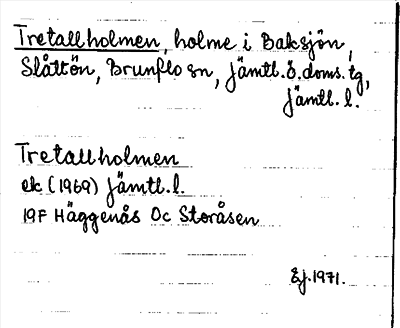 Tretallholmen, holme i Baksjön,
Slåttön, Brunflo sn, Jämtl.ö.doms.tg,
Jämtl.l.
Tretallholmen
ek (1969) Jämtl.l.
19F Häggenås Oc Storåsen
Ej.1971.